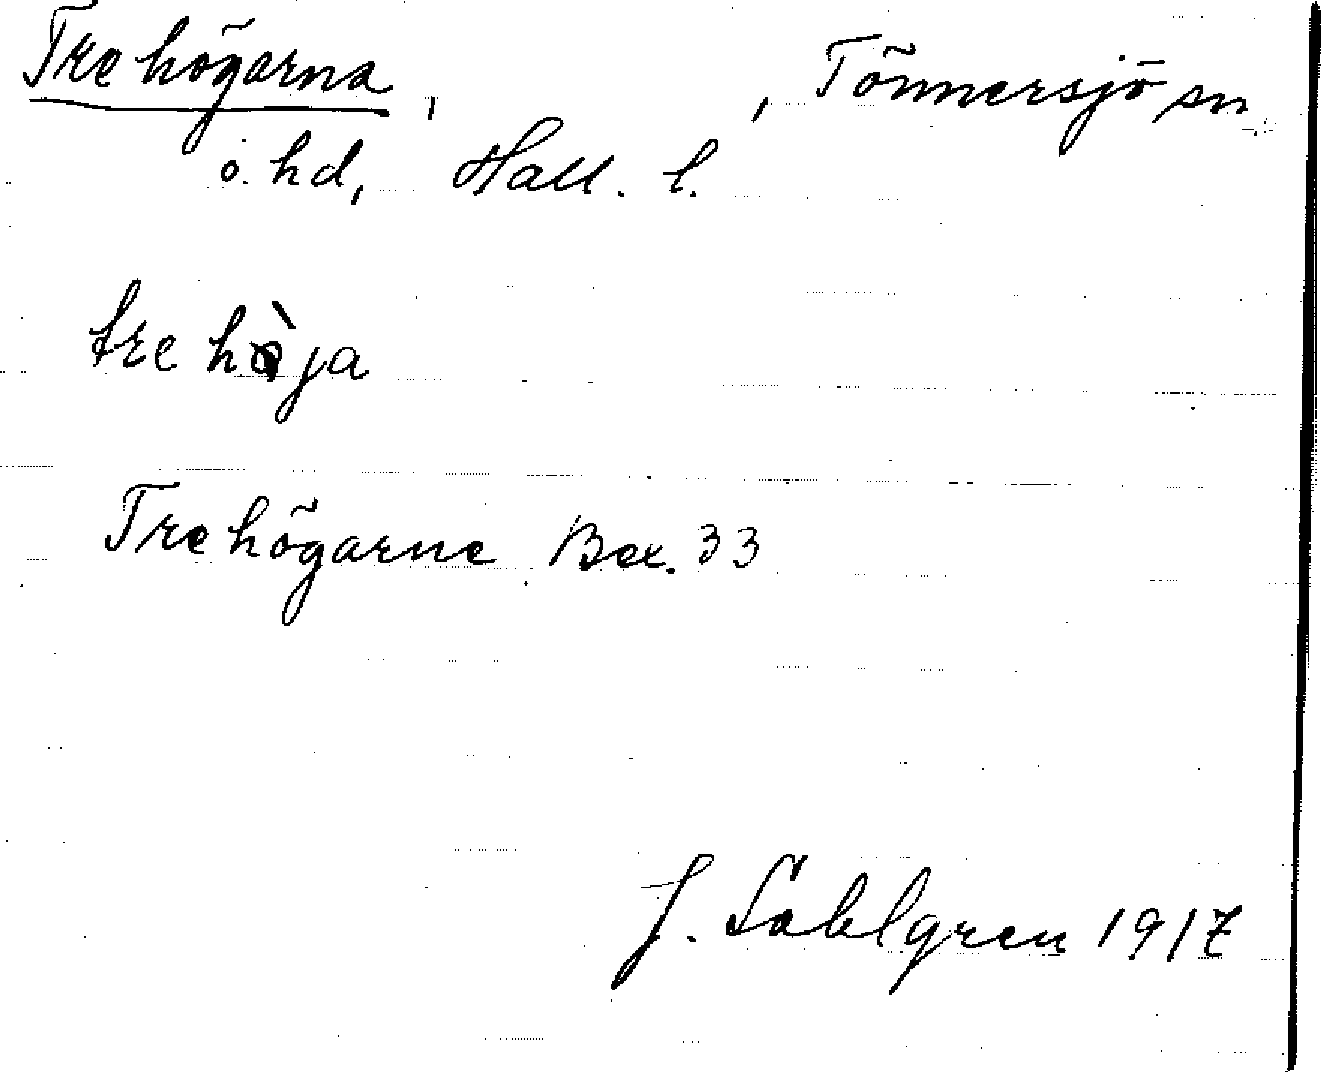 Tre högarna, , Tönnersjö sn
o. hd, Hall. l.
tre hòja
Tre högarne Bex. 33
J. Sahlgren 1917